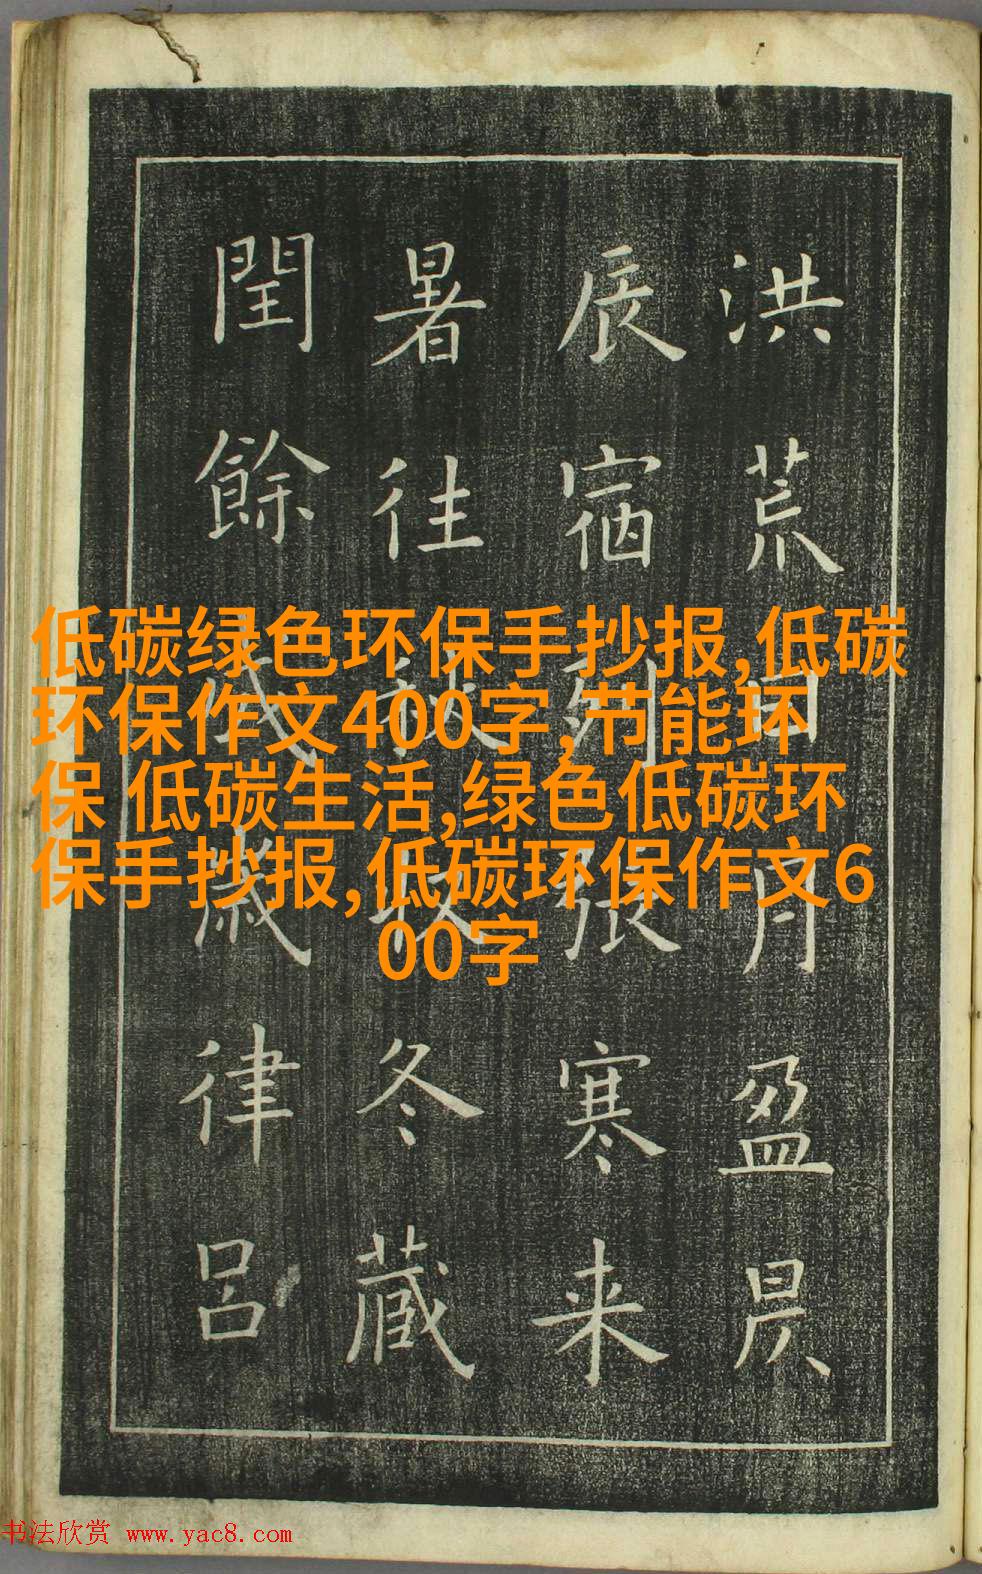 洪荒日月盈昃
辰宿列張寒来
暑往秋收冬藏
閏餘成歲律呂
低碳绿色环保手抄报,低碳
环保作文400字,节能环
保 低碳生活,绿色低碳环
保手抄报,低碳环保作文6
00字
书法欣赏 www.yac8.com